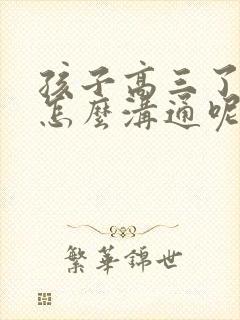 孩子高三了
怎麼溝通呢
繁華錦世